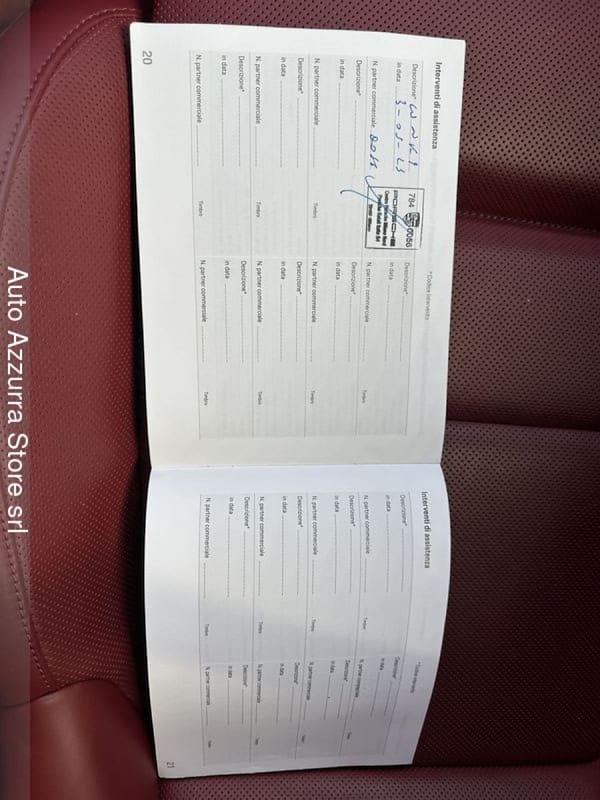 Interventi di assistenza
* Codice intervento
Descrizione*
in data
N. partner commerciale
784 0056
PORSCHE
Centro Porsche Milano Nord
Descrizione*
in data
N. partner commerciale
Timbro
Descrizione*
in data
N. partner commerciale
Timbro
Descrizione*
in data
N. partner commerciale
Timbro
Descrizione*
in data
N. partner commerciale
Timbro
Descrizione*
in data
N. partner commerciale
Timbro
Descrizione*
in data
N. partner commerciale
Timbro
Descrizione*
in data
N. partner commerciale
Timbro
20
Interventi di assistenza
*Codice intervento
Descrizione*
in data
N. partner commerciale
Timbro
Descrizione*
in data
N. partner commerciale
Timbro
Descrizione*
in data
N. partner commerciale
Timbro
Descrizione*
in data
N. partner commerciale
Timbro
Descrizione*
in data
N. partner commerciale
Timbro
Descrizione*
in data
N. partner commerciale
Timbro
Descrizione*
in data
N. partner commerciale
Timbro
Descrizione*
in data
N. partner commerciale
Timbro
21
Auto Azzurra Store srl